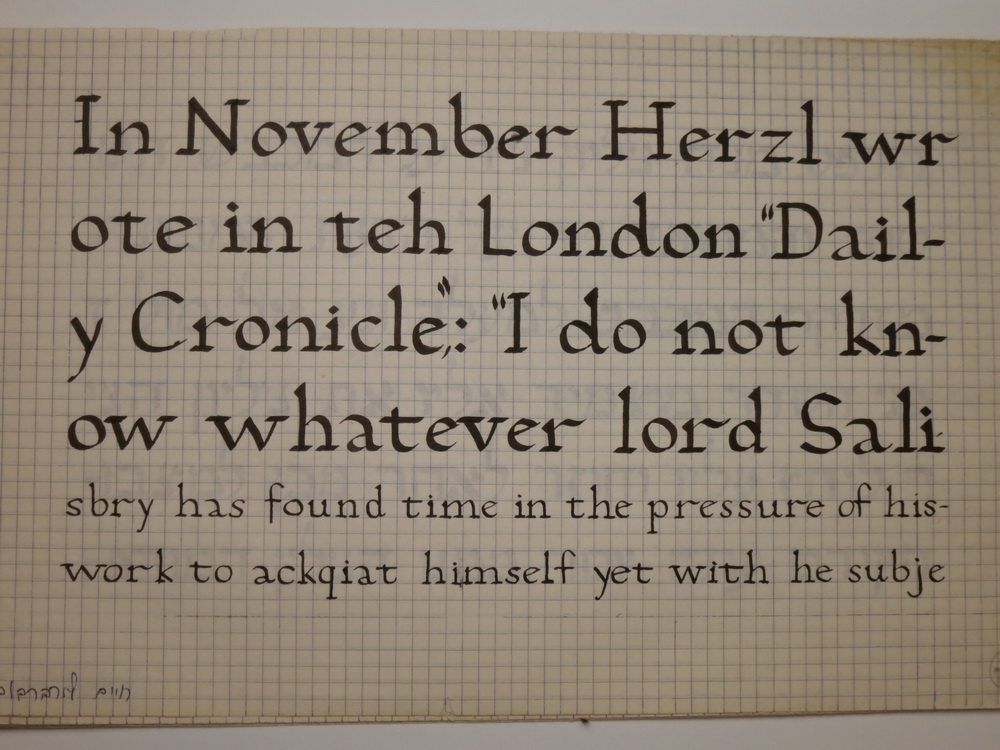 In November Herzl wr
ote in teh London "Dail-
y Cronicle": "I do not kn-
ow whatever lord Sali
sbry has found time in the pressure of his-
work to ackqiat himself yet with he subje